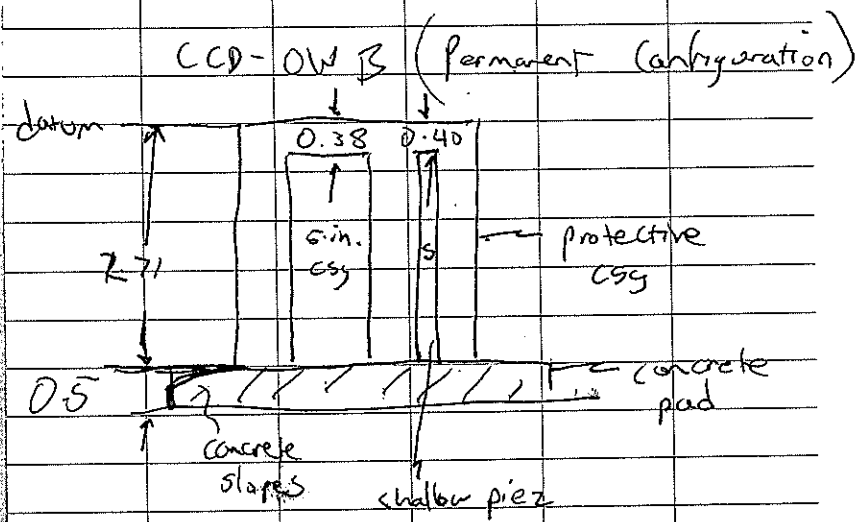 CCD-OW B (Permanent Configuration)
datum
0.38 0.40
5-in.
csg
S
protective
csg
2.71
0.5
concrete
pad
concrete
slopes
shallow piez